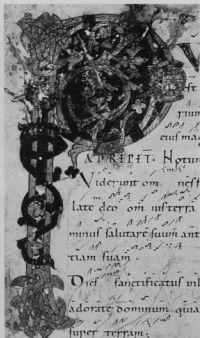 est
rium
eius mag
AD REPET. Notum
Viderunt om nes f
late deo om nis terra
minus salutare suum ant
tiam suam.
Dies sanctificatus inl
adorate dominum quia
super terram.